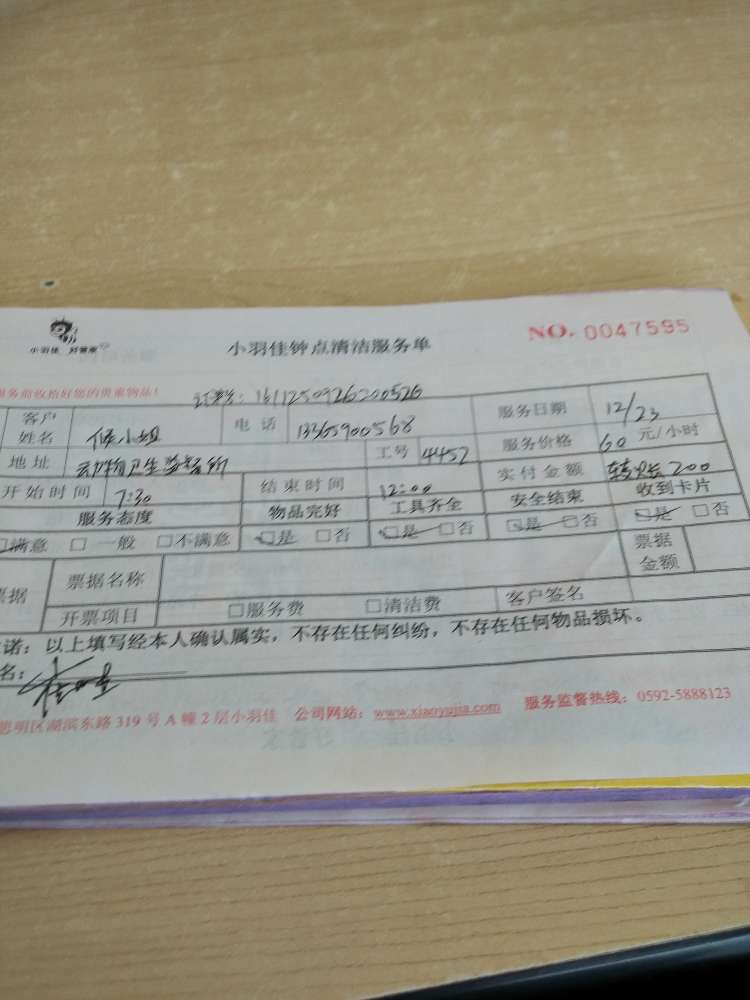 小羽佳 好管家
小羽佳钟点清洁服务单
NO. 0047595
服务前收拾好您的贵重物品!
1611250926200526
客户姓名 候小姐 电话 13365900568 服务日期 12/23
地址 动物卫生监督所 工号 4452 服务价格 60 元/小时
开始时间 7:30 结束时间 12:00 实付金额 转账200
服务态度 物品完好 工具齐全 安全结束 收到卡片
□满意 □一般 □不满意 □是 □否 □是 □否 □是 □否 □是 □否
据 票据名称 票据金额
开票项目 □服务费 □清洁费 客户签名
诺:以上填写经本人确认属实,不存在任何纠纷,不存在任何物品损坏。
名:
思明区湖滨东路319号A幢2层小羽佳 公司网站:www.xiaoyujia.com 服务监督热线:0592-5888123